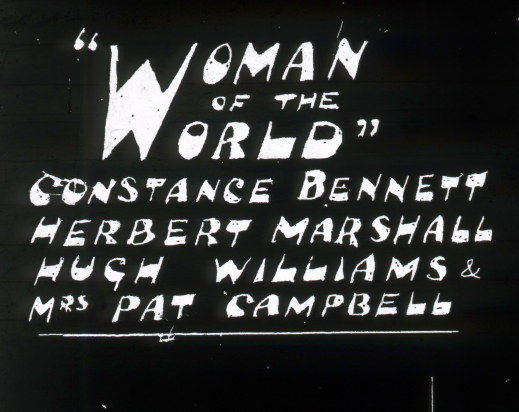 “WOMAN
OF THE
WORLD”
CONSTANCE BENNETT
HERBERT MARSHALL
HUGH WILLIAMS &
MRS PAT CAMPBELL